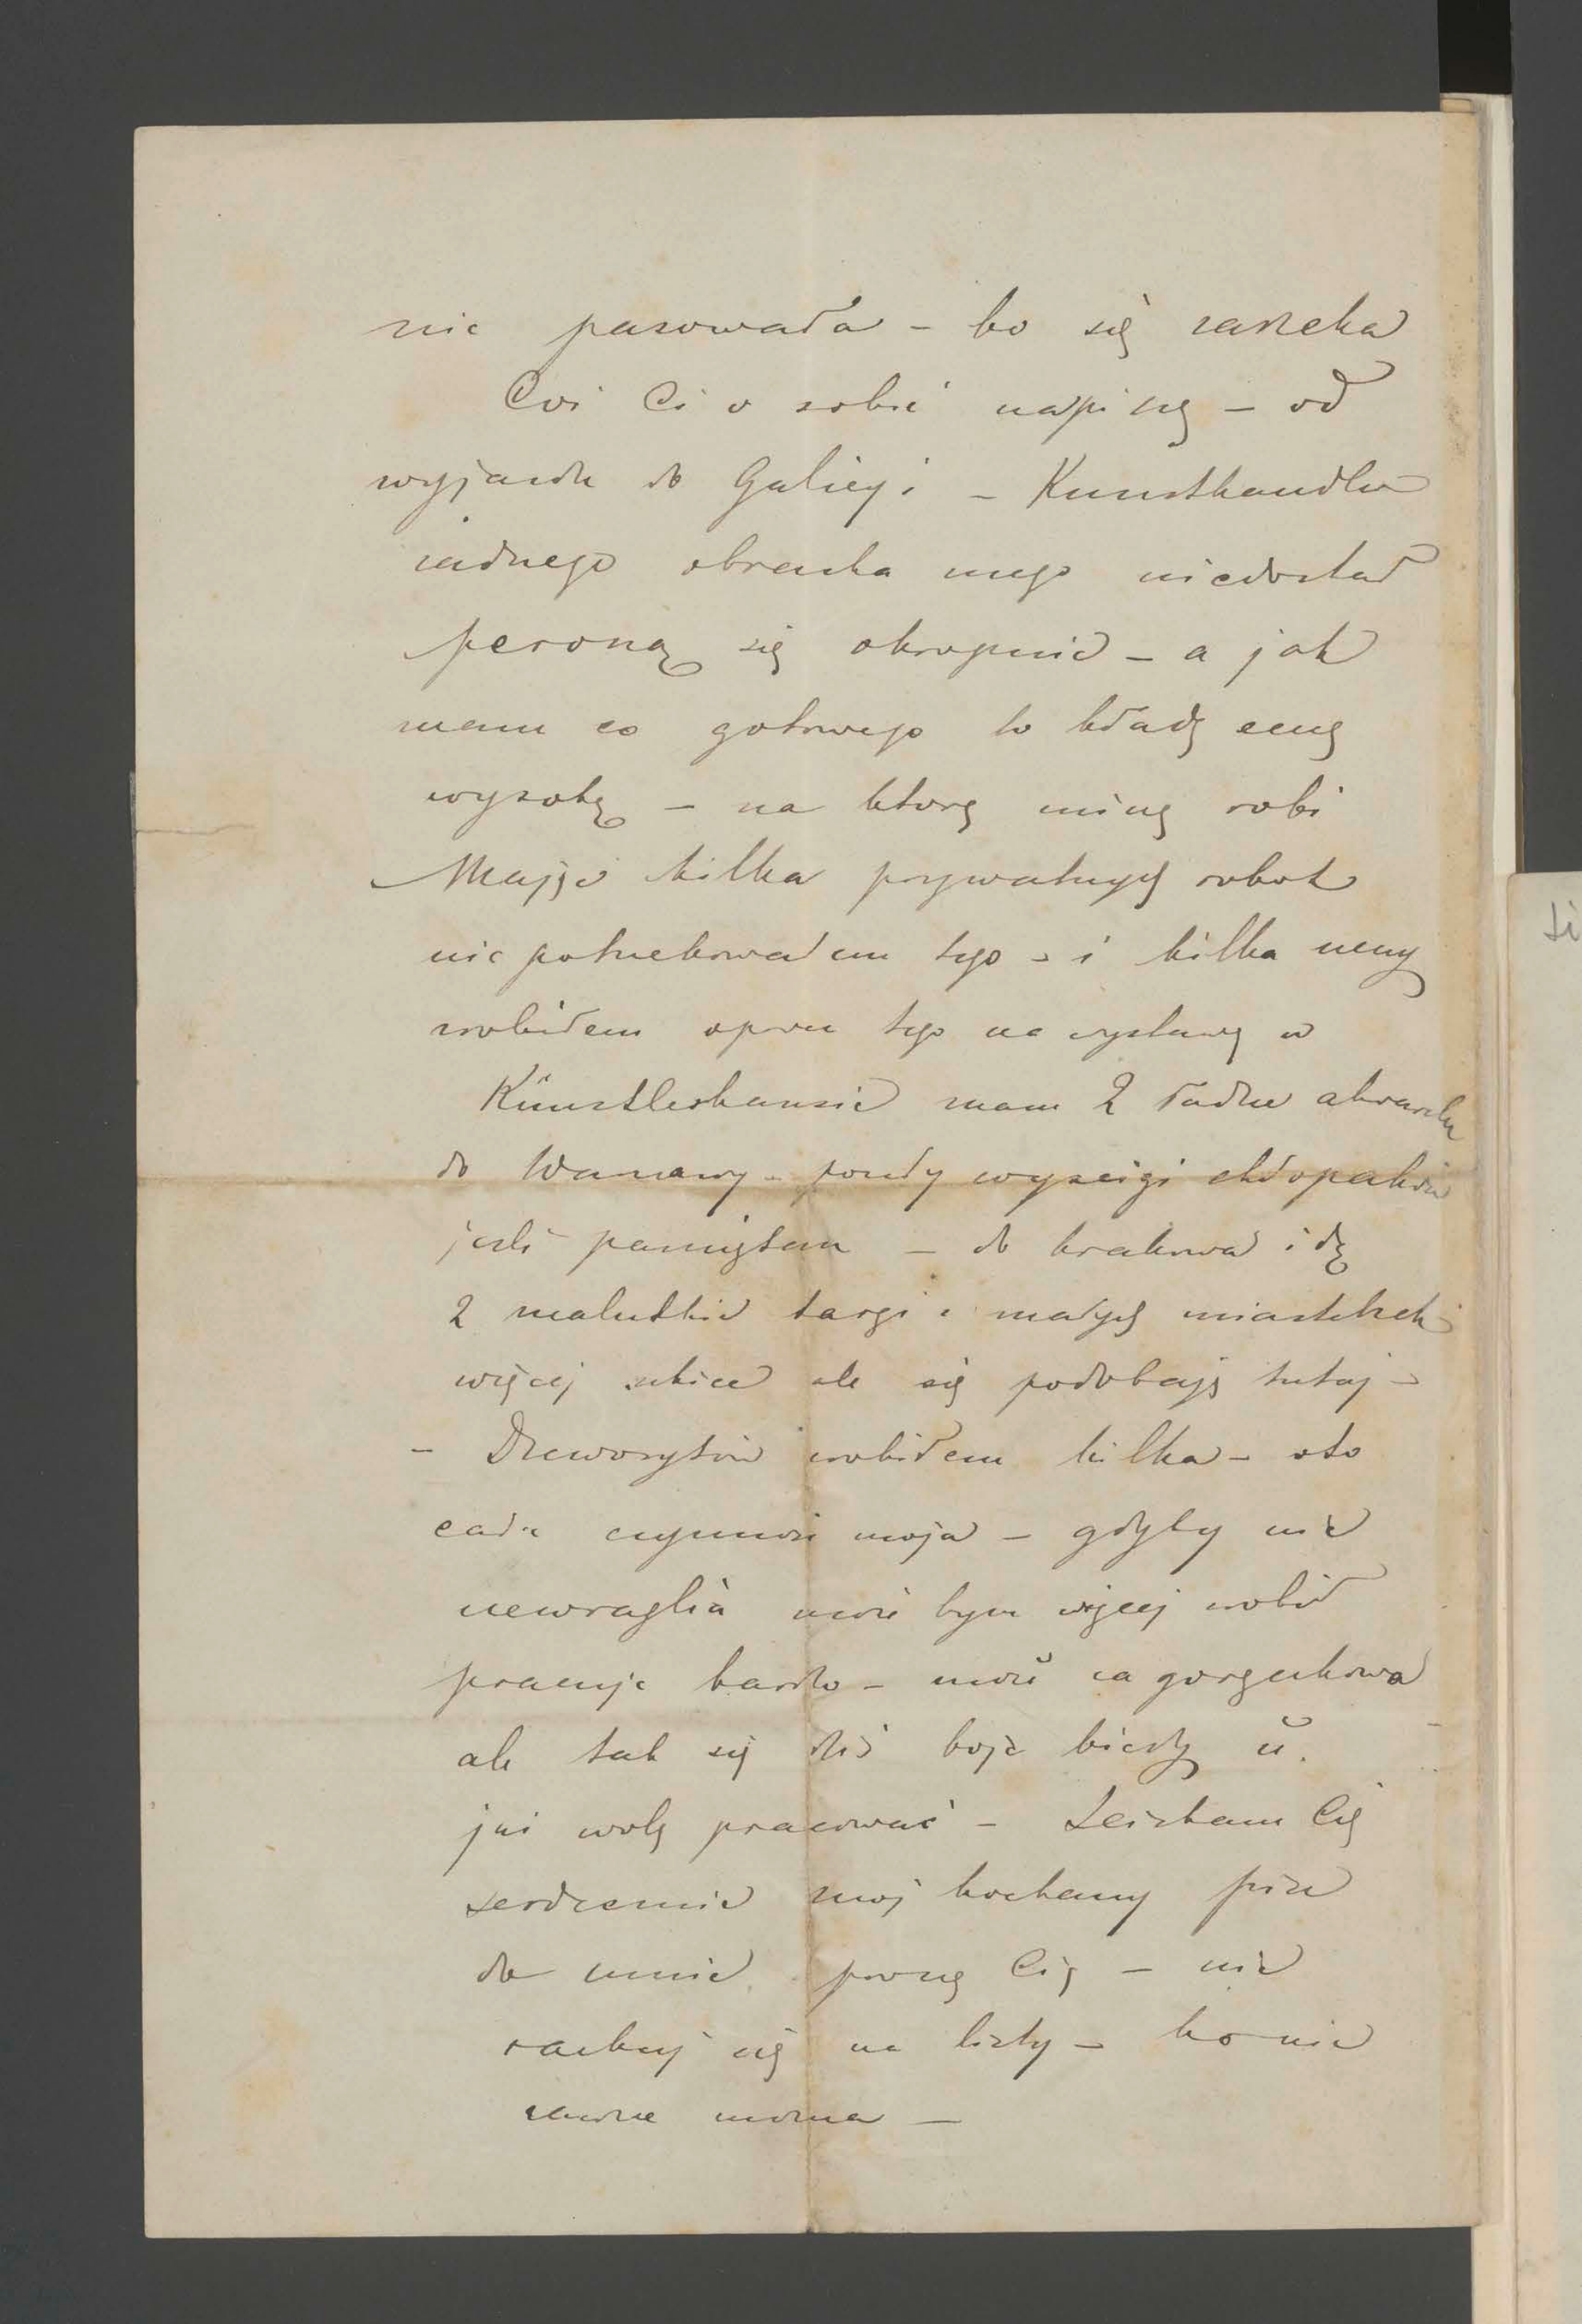 nie pasowała – bo się zaszeka
Coś Ci o sobie napiszę – od
wyjazdu do Galicyi – Kunsthandler
żadnego obrazka mego niedostał
perszną się okropnie – a jak
mam co gotowego to kładę cenę
wysoką – na którą minę robi
Mając kilka prywatnych robot
nie potrzebowałem tego – i kilka rzeczy
zrobiłem oprócz tego na wystawę w
Künstlerhausie mam 2 ładne obrazki
do Warszawy – wyścigi chłopaków
jeśli pamiętam – do Krakowa idą
2 malutkie targi z małych miasteczek
więcej szkice ale się podobają tutaj –
– Drzeworytów zrobiłem kilka – oto
cała czynność moja – gdyby nie
newralgia może bym więcej zrobił
pracuję bardzo – może za gorączkowo
ale tak się dziś boję biedy iż
już wolę pracować – Ściskam Cię
serdecznie mój kochany pisz
do mnie proszę Cię – nie
rachuj się na listy – bo nie
zawsze można –
Li